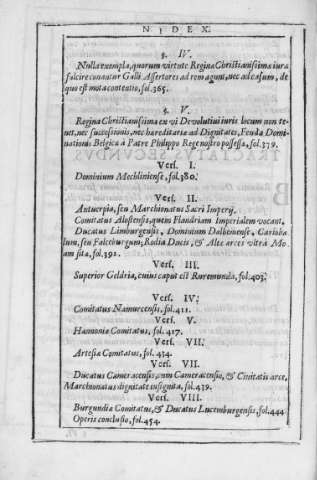 INDEX.
§. IV.
Nulla exempla, quorum virtute Regina Christianissima iura
fulcire conantur Galli Assertores ad rem agunt, nec ad casum, de
quo est mota contentio, fol.365.
§. V.
Regina Christianissima ex vi Devolutivi iuris locum non te-
net, nec successionis, nec hæreditaria ad Dignitates, Feuda Domi-
nationis Belgica à Patre Philippo Rege nostro possessa, fol.379.
Vers. I.
Dominium Mechliniense, fol.380.
Vers. II.
Antuerpia, seu Marchionatus Sacri Imperij.
Comitatus Alostensis, quem Flandriam Imperialem vocant,
Ducatus Limburgensis, Dominium Dalhemense, Carlob
lum, seu Falceburgum, Rodia Ducis, & Alse arces vltrà Mo-
sam sita, fol.391.
Vers. III.
Superior Geldria, cuius caput est Ruremunda, fol.403.
Vers. IV.
Comitatus Namurcensis, fol.411.
Vers. V.
Hannonie Comitatus, fol.417.
Vers. VII.
Artesia Comitatus, fol.434.
Vers. VII.
Ducatus Cameracensis, cum Cameracensio, & Civitatis arce,
Marchionatus dignitate insignita, fol.439.
Vers. VIII.
Burgundia Comitatus, & Ducatus Lucemburgensis, fol.444
Operis conclusio, fol.454.